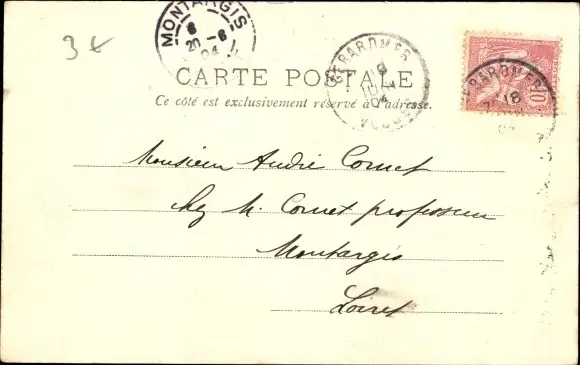 3€
MONTARGIS
6
20-6
04
GÉRARDMER
VOSGES
GÉRARDMER
18
10
CARTE POSTALE
Ce côté est exclusivement réservé à l'adresse.
Monsieur André Cornet
chez M. Cornet professeur
Montargis
Loiret